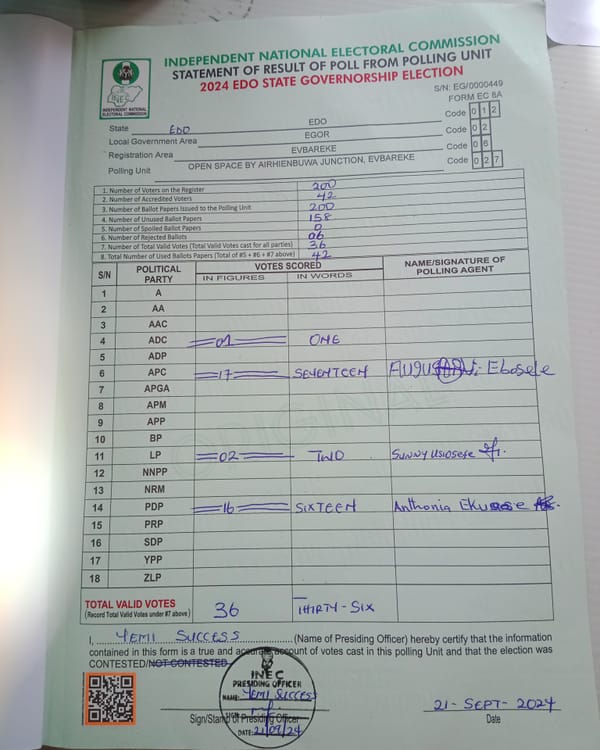 INDEPENDENT NATIONAL ELECTORAL COMMISSION
STATEMENT OF RESULT OF POLL FROM POLLING UNIT
2024 EDO STATE GOVERNORSHIP ELECTION
INEC
INDEPENDENT NATIONAL
ELECTORAL COMMISSION
S/N: EG/0000449
FORM EC 8A
State EDO EDO Code 0 1 2
Local Government Area EGOR Code 0 2
Registration Area EVBAREKE Code 0 6
Polling Unit OPEN SPACE BY AIRHIENBUWA JUNCTION, EVBAREKE Code 0 2 7
1. Number of Voters on the Register 200
2. Number of Accredited Voters 42
3. Number of Ballot Papers Issued to the Polling Unit 200
4. Number of Unused Ballot Papers 158
5. Number of Spoiled Ballot Papers 0
6. Number of Rejected Ballots 06
7. Number of Total Valid Votes (Total Valid Votes cast for all parties) 36
8. Total Number of Used Ballots Papers (Total of #5 + #6 + #7 above) 42
S/N POLITICAL PARTY VOTES SCORED NAME/SIGNATURE OF POLLING AGENT
IN FIGURES IN WORDS
1 A
2 AA
3 AAC
4 ADC 01 ONE
5 ADP
6 APC 17 SEVENTEEN Ebosele
7 APGA
8 APM
9 APP
10 BP
11 LP 02 TWO SUNNY USIOSEFE
12 NNPP
13 NRM
14 PDP 16 SIXTEEN Anthonia
15 PRP
16 SDP
17 YPP
18 ZLP
TOTAL VALID VOTES 36 THIRTY-SIX
(Record Total Valid Votes under #7 above)
I, YEMI SUCCESS (Name of Presiding Officer) hereby certify that the information
contained in this form is a true and accurate account of votes cast in this polling Unit and that the election was
CONTESTED/NOT CONTESTED
INEC
PRESIDING OFFICER
NAME: YEMI SUCCESS
SIGN
Sign/Stamp of Presiding Officer
DATE: 21/09/24
21-SEPT-2024
Date
ORIGINAL